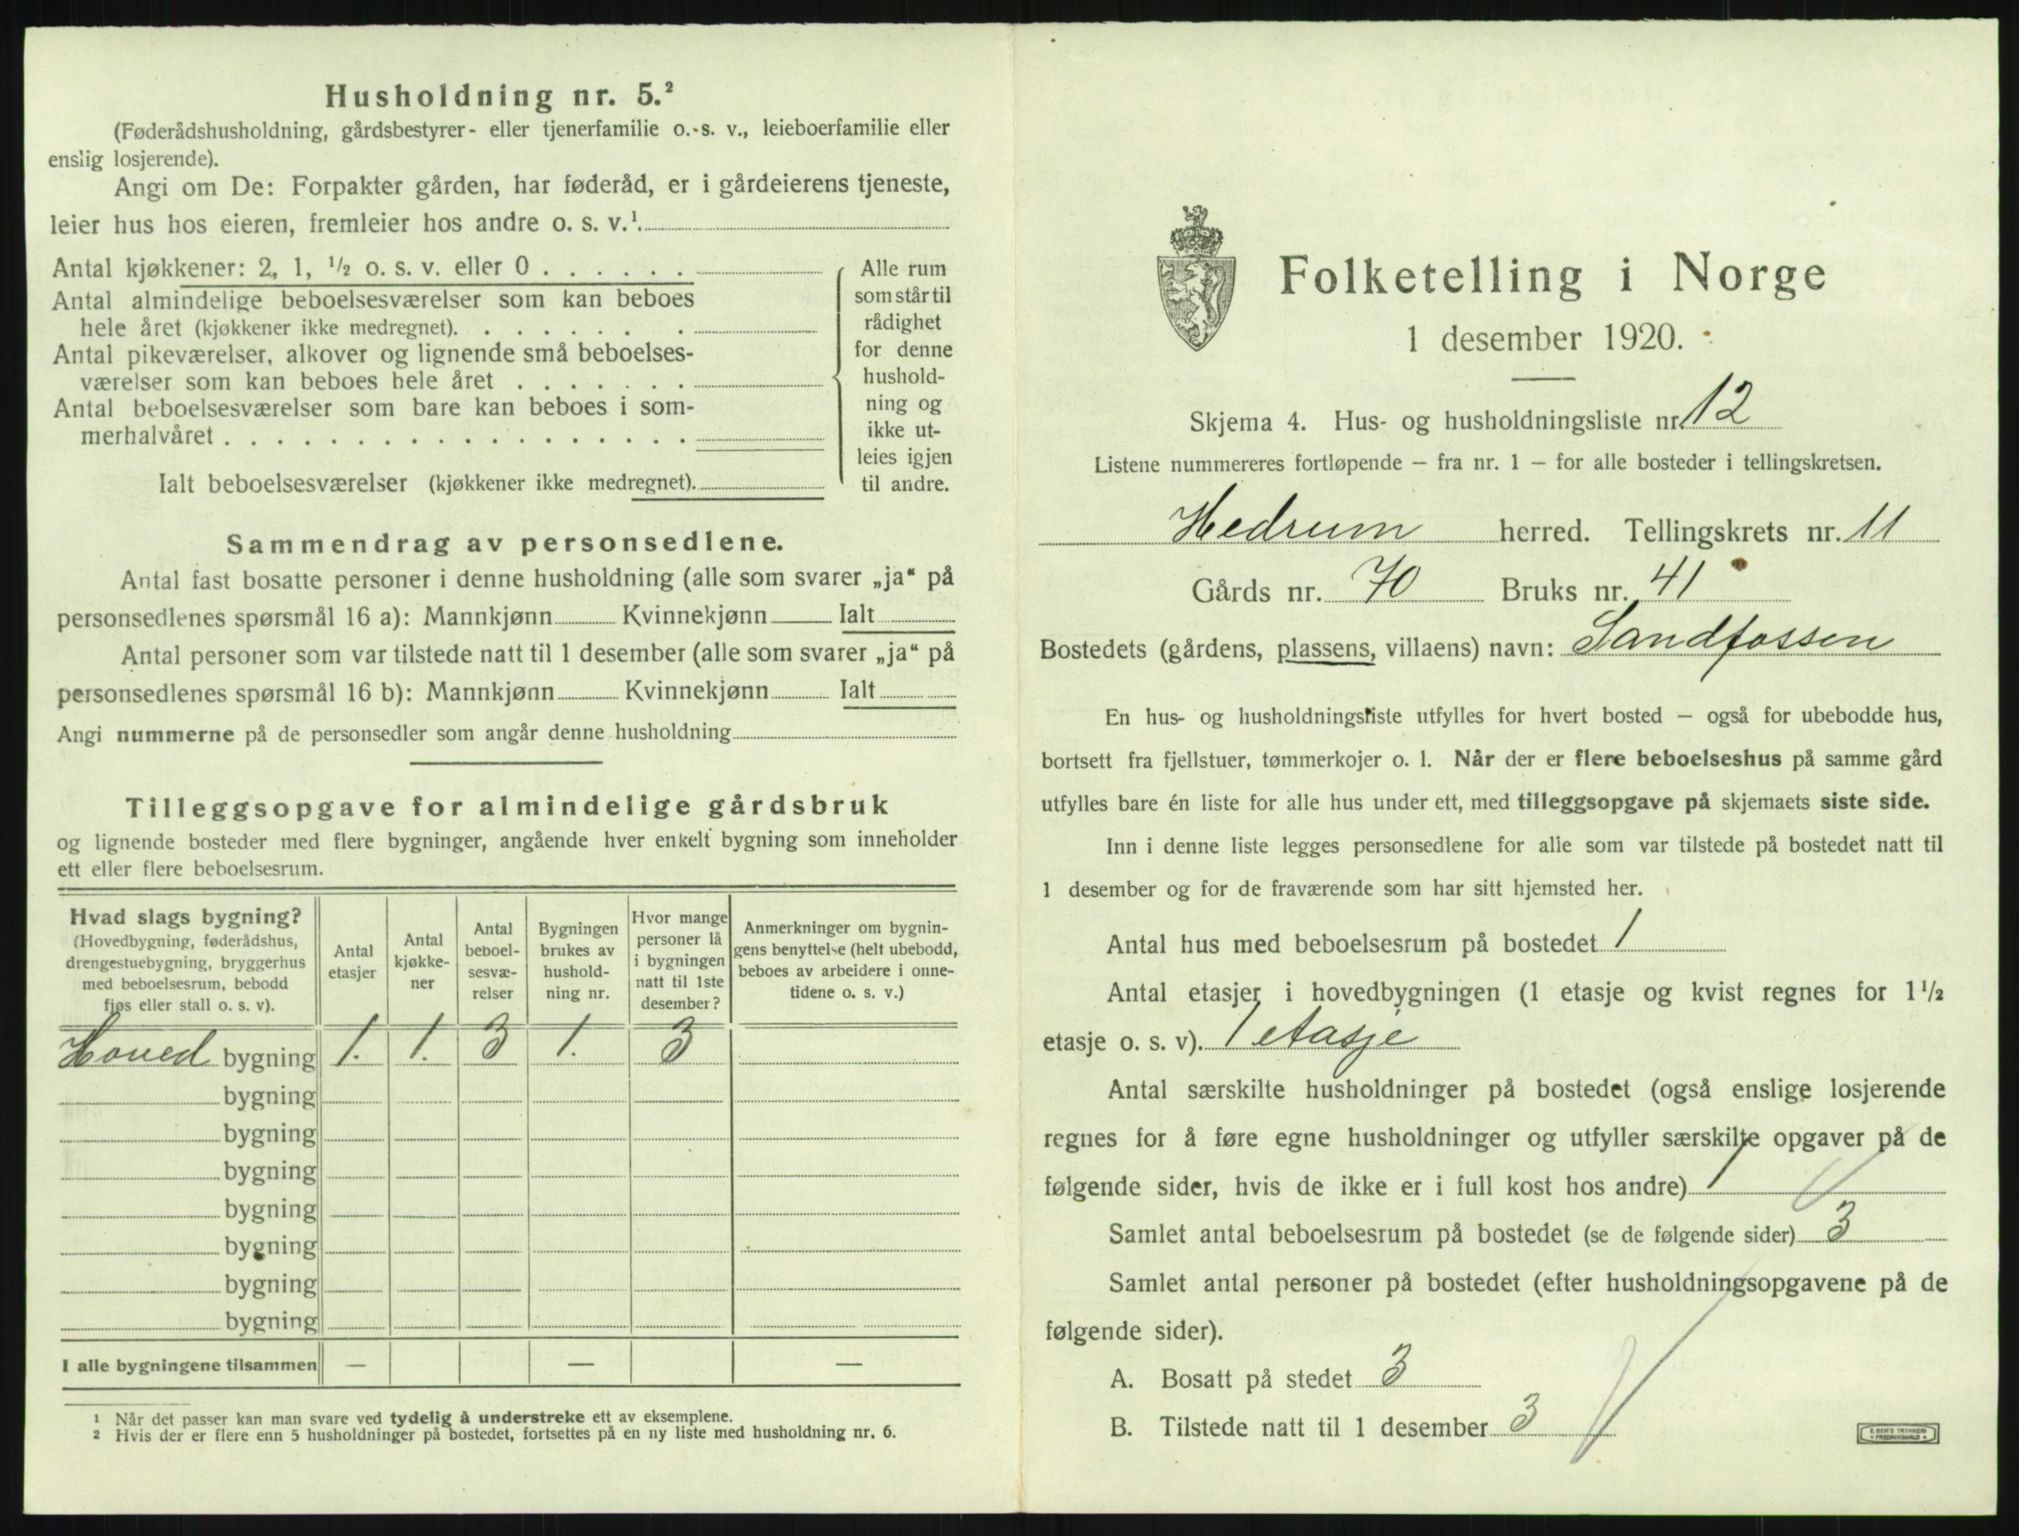 Husholdning nr. 5.²
(Føderådshusholdning, gårdsbestyrer- eller tjenerfamilie o. s. v., leieboerfamilie eller
enslig losjerende).
Angi om De: Forpakter gården, har føderåd, er i gårdeierens tjeneste,
leier hus hos eieren, fremleier hos andre o. s. v.¹.
Antal kjøkkener: 2, 1, ½ o. s. v. eller 0 . . . . . .
Antal almindelige beboelsesværelser som kan beboes
hele året (kjøkkener ikke medregnet). . . . . . . .
Antal pikeværelser, alkover og lignende små beboelses-
værelser som kan beboes hele året . . . . . . .
Antal beboelsesværelser som bare kan beboes i som-
merhalvåret . . . . . . . . . . . . . . . . . .
Ialt beboelsesværelser (kjøkkener ikke medregnet).
Alle rum
som står til
rådighet
for denne
hushold-
ning og
ikke ut-
leies igjen
til andre.
Sammendrag av personsedlene.
Antal fast bosatte personer i denne husholdning (alle som svarer „ja“ på
personsedlenes spørsmål 16 a): Mannkjønn Kvinnekjønn Ialt
Antal personer som var tilstede natt til 1 desember (alle som svarer „ja“ på
personsedlenes spørsmål 16 b): Mannkjønn Kvinnekjønn Ialt
Angi nummerne på de personsedler som angår denne husholdning
Tilleggsopgave for almindelige gårdsbruk
og lignende bosteder med flere bygninger, angående hver enkelt bygning som inneholder
ett eller flere beboelsesrum.
Hvad slags bygning?
(Hovedbygning, føderådshus,
drengestuebygning, bryggerhus
med beboelsesrum, bebodd
fjøs eller stall o. s. v).
Antal
etasjer
Antal
kjøkke-
ner
Antal
beboel-
sesvæ-
relser
Bygningen
brukes av
hushold-
ning nr.
Hvor mange
personer lå
i bygningen
natt til 1ste
desember?
Anmerkninger om bygnin-
gens benyttelse (helt ubebodd,
beboes av arbeidere i onne-
tidene o. s. v.)
Hoved bygning 1. 1. 3 1. 3
bygning
bygning
bygning
bygning
bygning
bygning
bygning
I alle bygningene tilsammen — — —
¹ Når det passer kan man svare ved tydelig å understreke ett av eksemplene.
² Hvis der er flere enn 5 husholdninger på bostedet, fortsettes på en ny liste med husholdning nr. 6.
Folketelling i Norge
1 desember 1920.
Skjema 4. Hus- og husholdningsliste nr. 12
Listene nummereres fortløpende – fra nr. 1 – for alle bosteder i tellingskretsen.
Hedrum herred. Tellingskrets nr. 11
Gårds nr. 70 Bruks nr. 41
Bostedets (gårdens, plassens, villaens) navn: Sandfossen
En hus- og husholdningsliste utfylles for hvert bosted – også for ubebodde hus,
bortsett fra fjellstuer, tømmerkojer o. l. Når der er flere beboelseshus på samme gård
utfylles bare én liste for alle hus under ett, med tilleggsopgave på skjemaets siste side.
Inn i denne liste legges personsedlene for alle som var tilstede på bostedet natt til
1 desember og for de fraværende som har sitt hjemsted her.
Antal hus med beboelsesrum på bostedet 1
Antal etasjer i hovedbygningen (1 etasje og kvist regnes for 1½
etasje o. s. v). 1 etasje
Antal særskilte husholdninger på bostedet (også enslige losjerende
regnes for å føre egne husholdninger og utfyller særskilte opgaver på de
følgende sider, hvis de ikke er i full kost hos andre) 1
Samlet antal beboelsesrum på bostedet (se de følgende sider) 3
Samlet antal personer på bostedet (efter husholdningsopgavene på de
følgende sider).
A. Bosatt på stedet 3
B. Tilstede natt til 1 desember 3